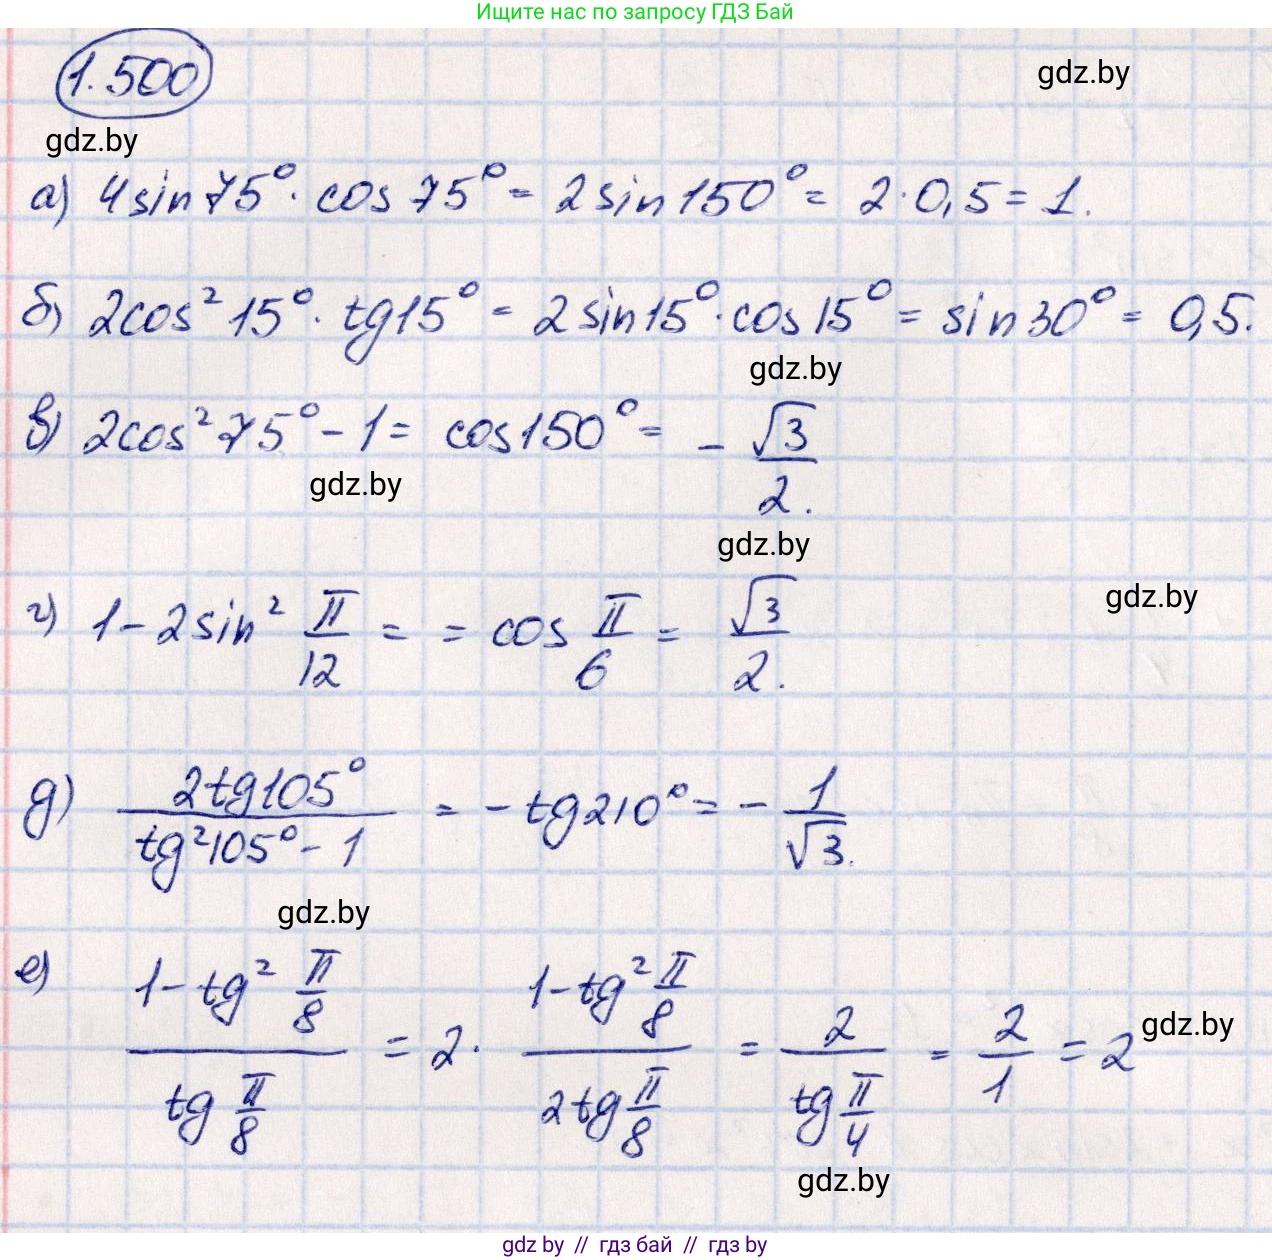 Ищите нас по запросу ГДЗ Бай
1.500
gdz.by
gdz.by
а) 4sin75°·cos75° = 2sin150° = 2·0,5 = 1.
б) 2cos²15°·tg15° = 2sin15°·cos15° = sin30° = 0,5.
gdz.by
в) 2cos²75° - 1 = cos150° = -√3/2.
gdz.by
gdz.by
gdz.by
г) 1 - 2sin² π/12 = = cos π/6 = √3/2.
д) 2tg105°/(tg²105° - 1) = -tg210° = -1/√3.
gdz.by
е) (1 - tg² π/8)/(tg π/8) = 2·(1 - tg² π/8)/(2tg π/8) = 2/(tg π/4) = 2/1 = 2
gdz.by
gdz.by
gdz by // гдз бай // гдз by